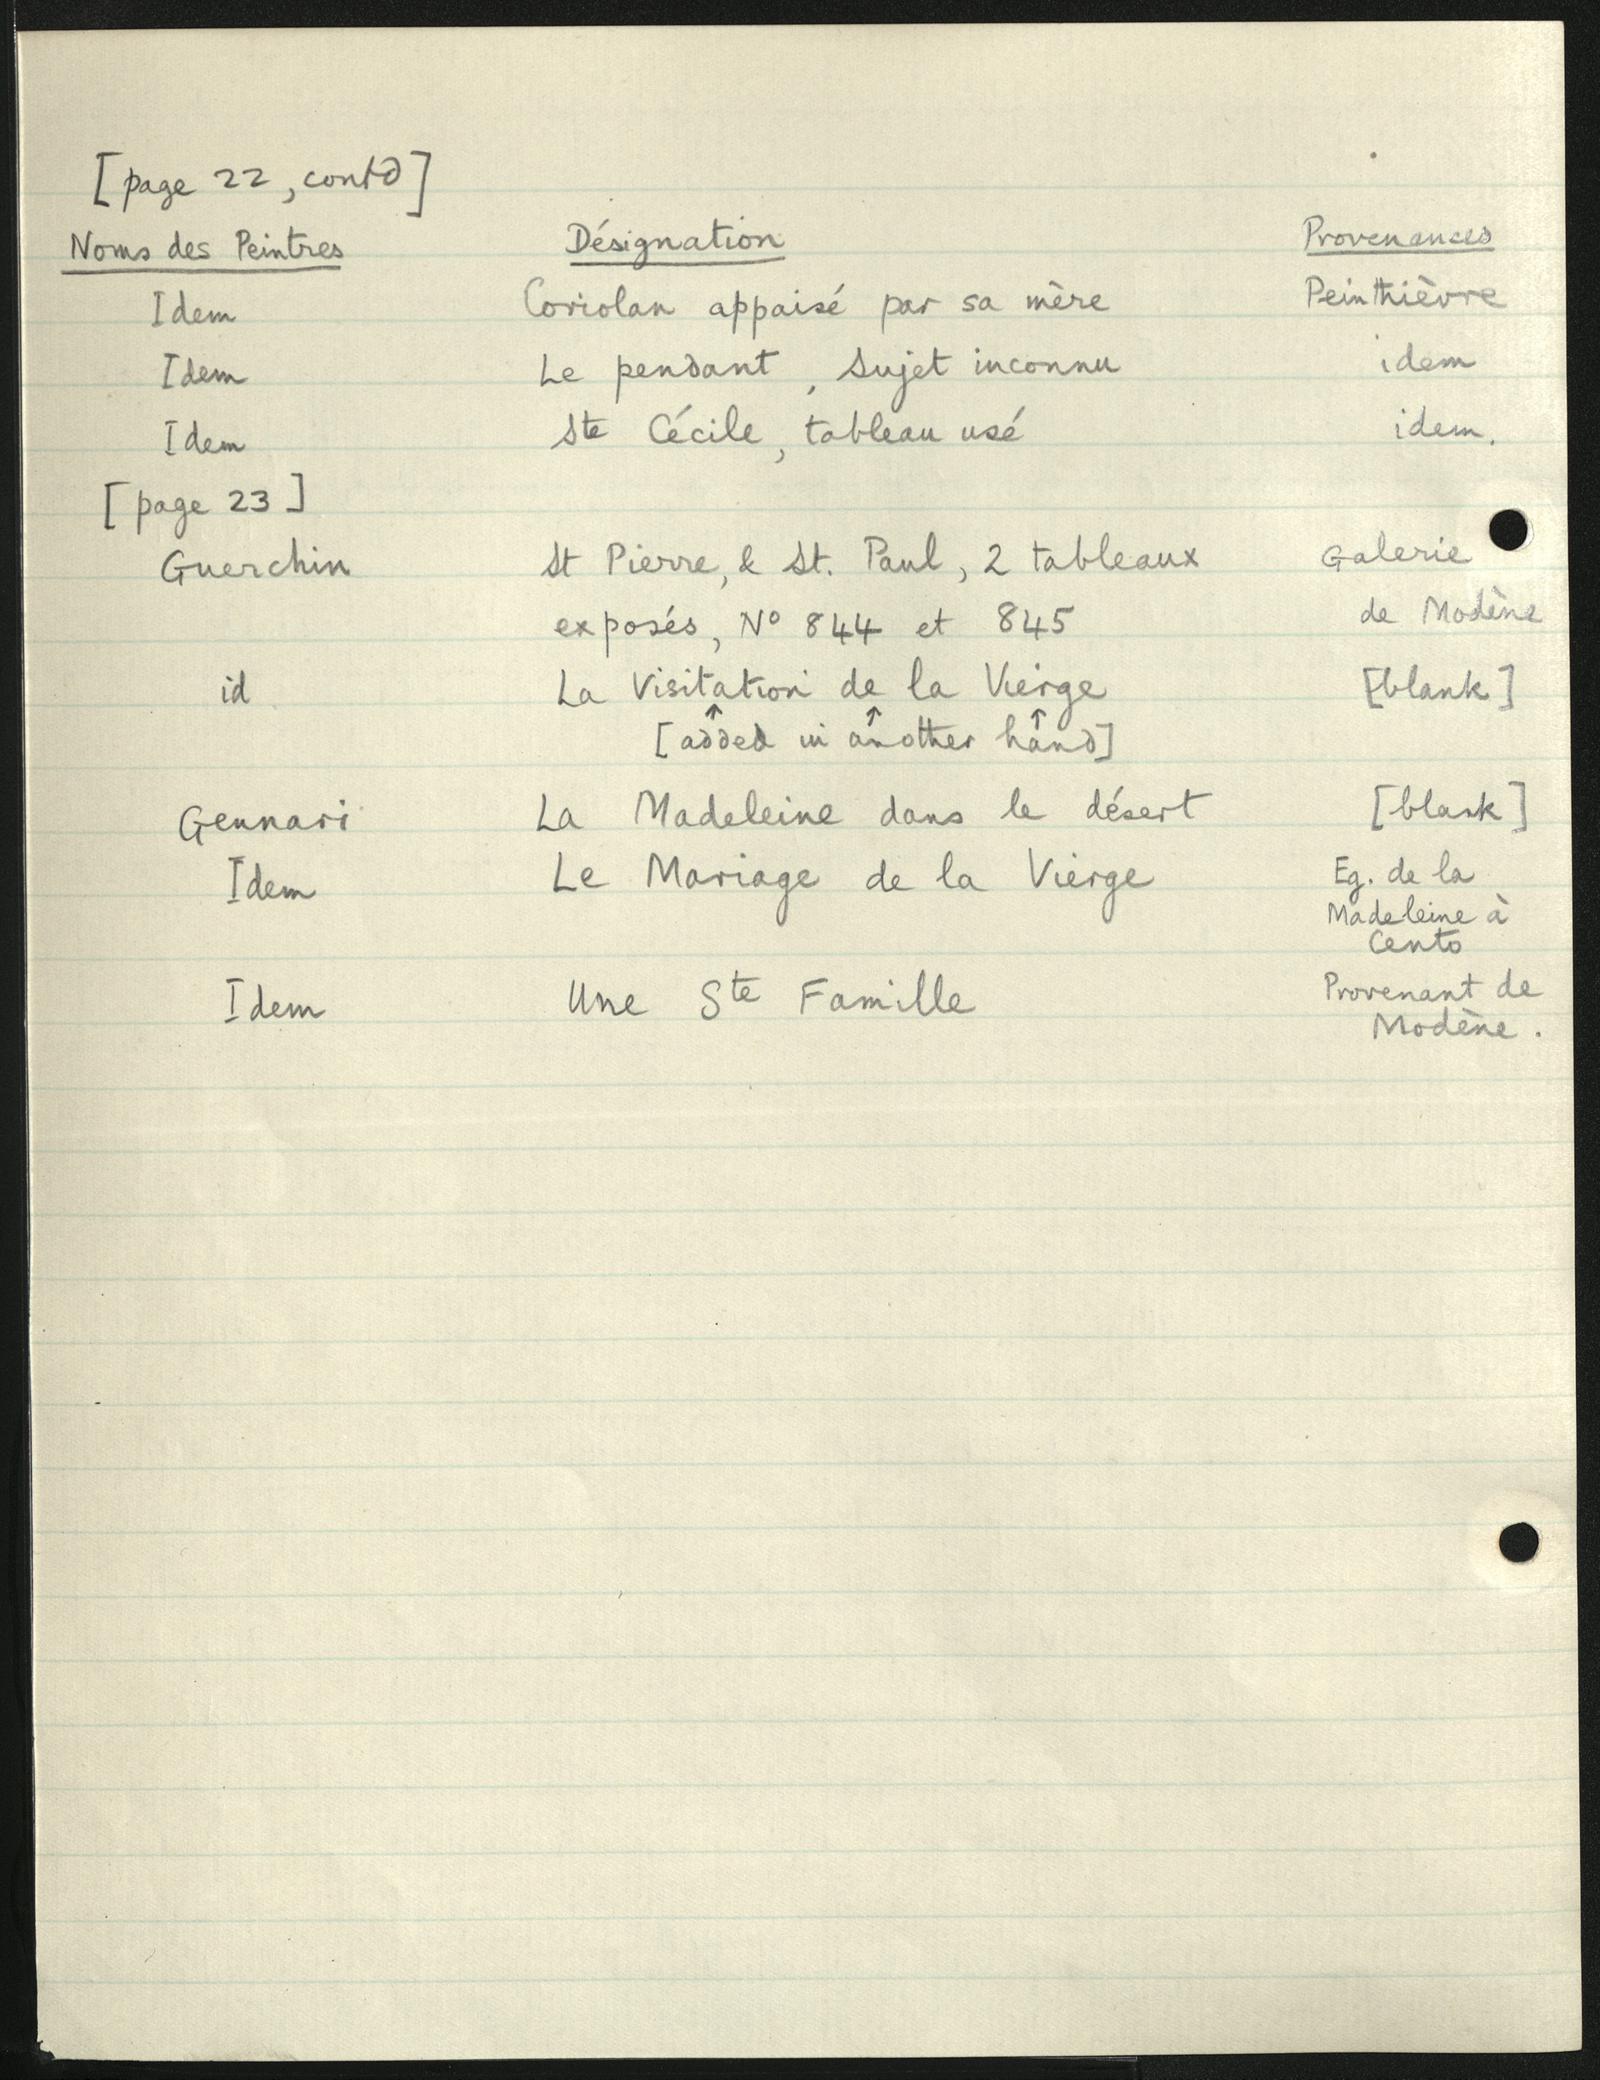 [page 22, contd]
Noms des Peintres Désignation Provenances
Idem Coriolan appaisé par sa mère Peinthièvre
Idem Le pendant, Sujet inconnu idem
Idem Ste Cécile, tableau usé idem.
[page 23]
Guerchin St Pierre, & St. Paul, 2 tableaux Galerie
exposés, No 844 et 845 de Modène
id La Visitation de la Vierge [blank]
↑ ↑ ↑
[added in another hand]
Gennari La Madeleine dans le désert [blank]
Idem Le Mariage de la Vierge Eg. de la
Madeleine à
Cento
Idem Une Ste Famille Provenant de
Modène.